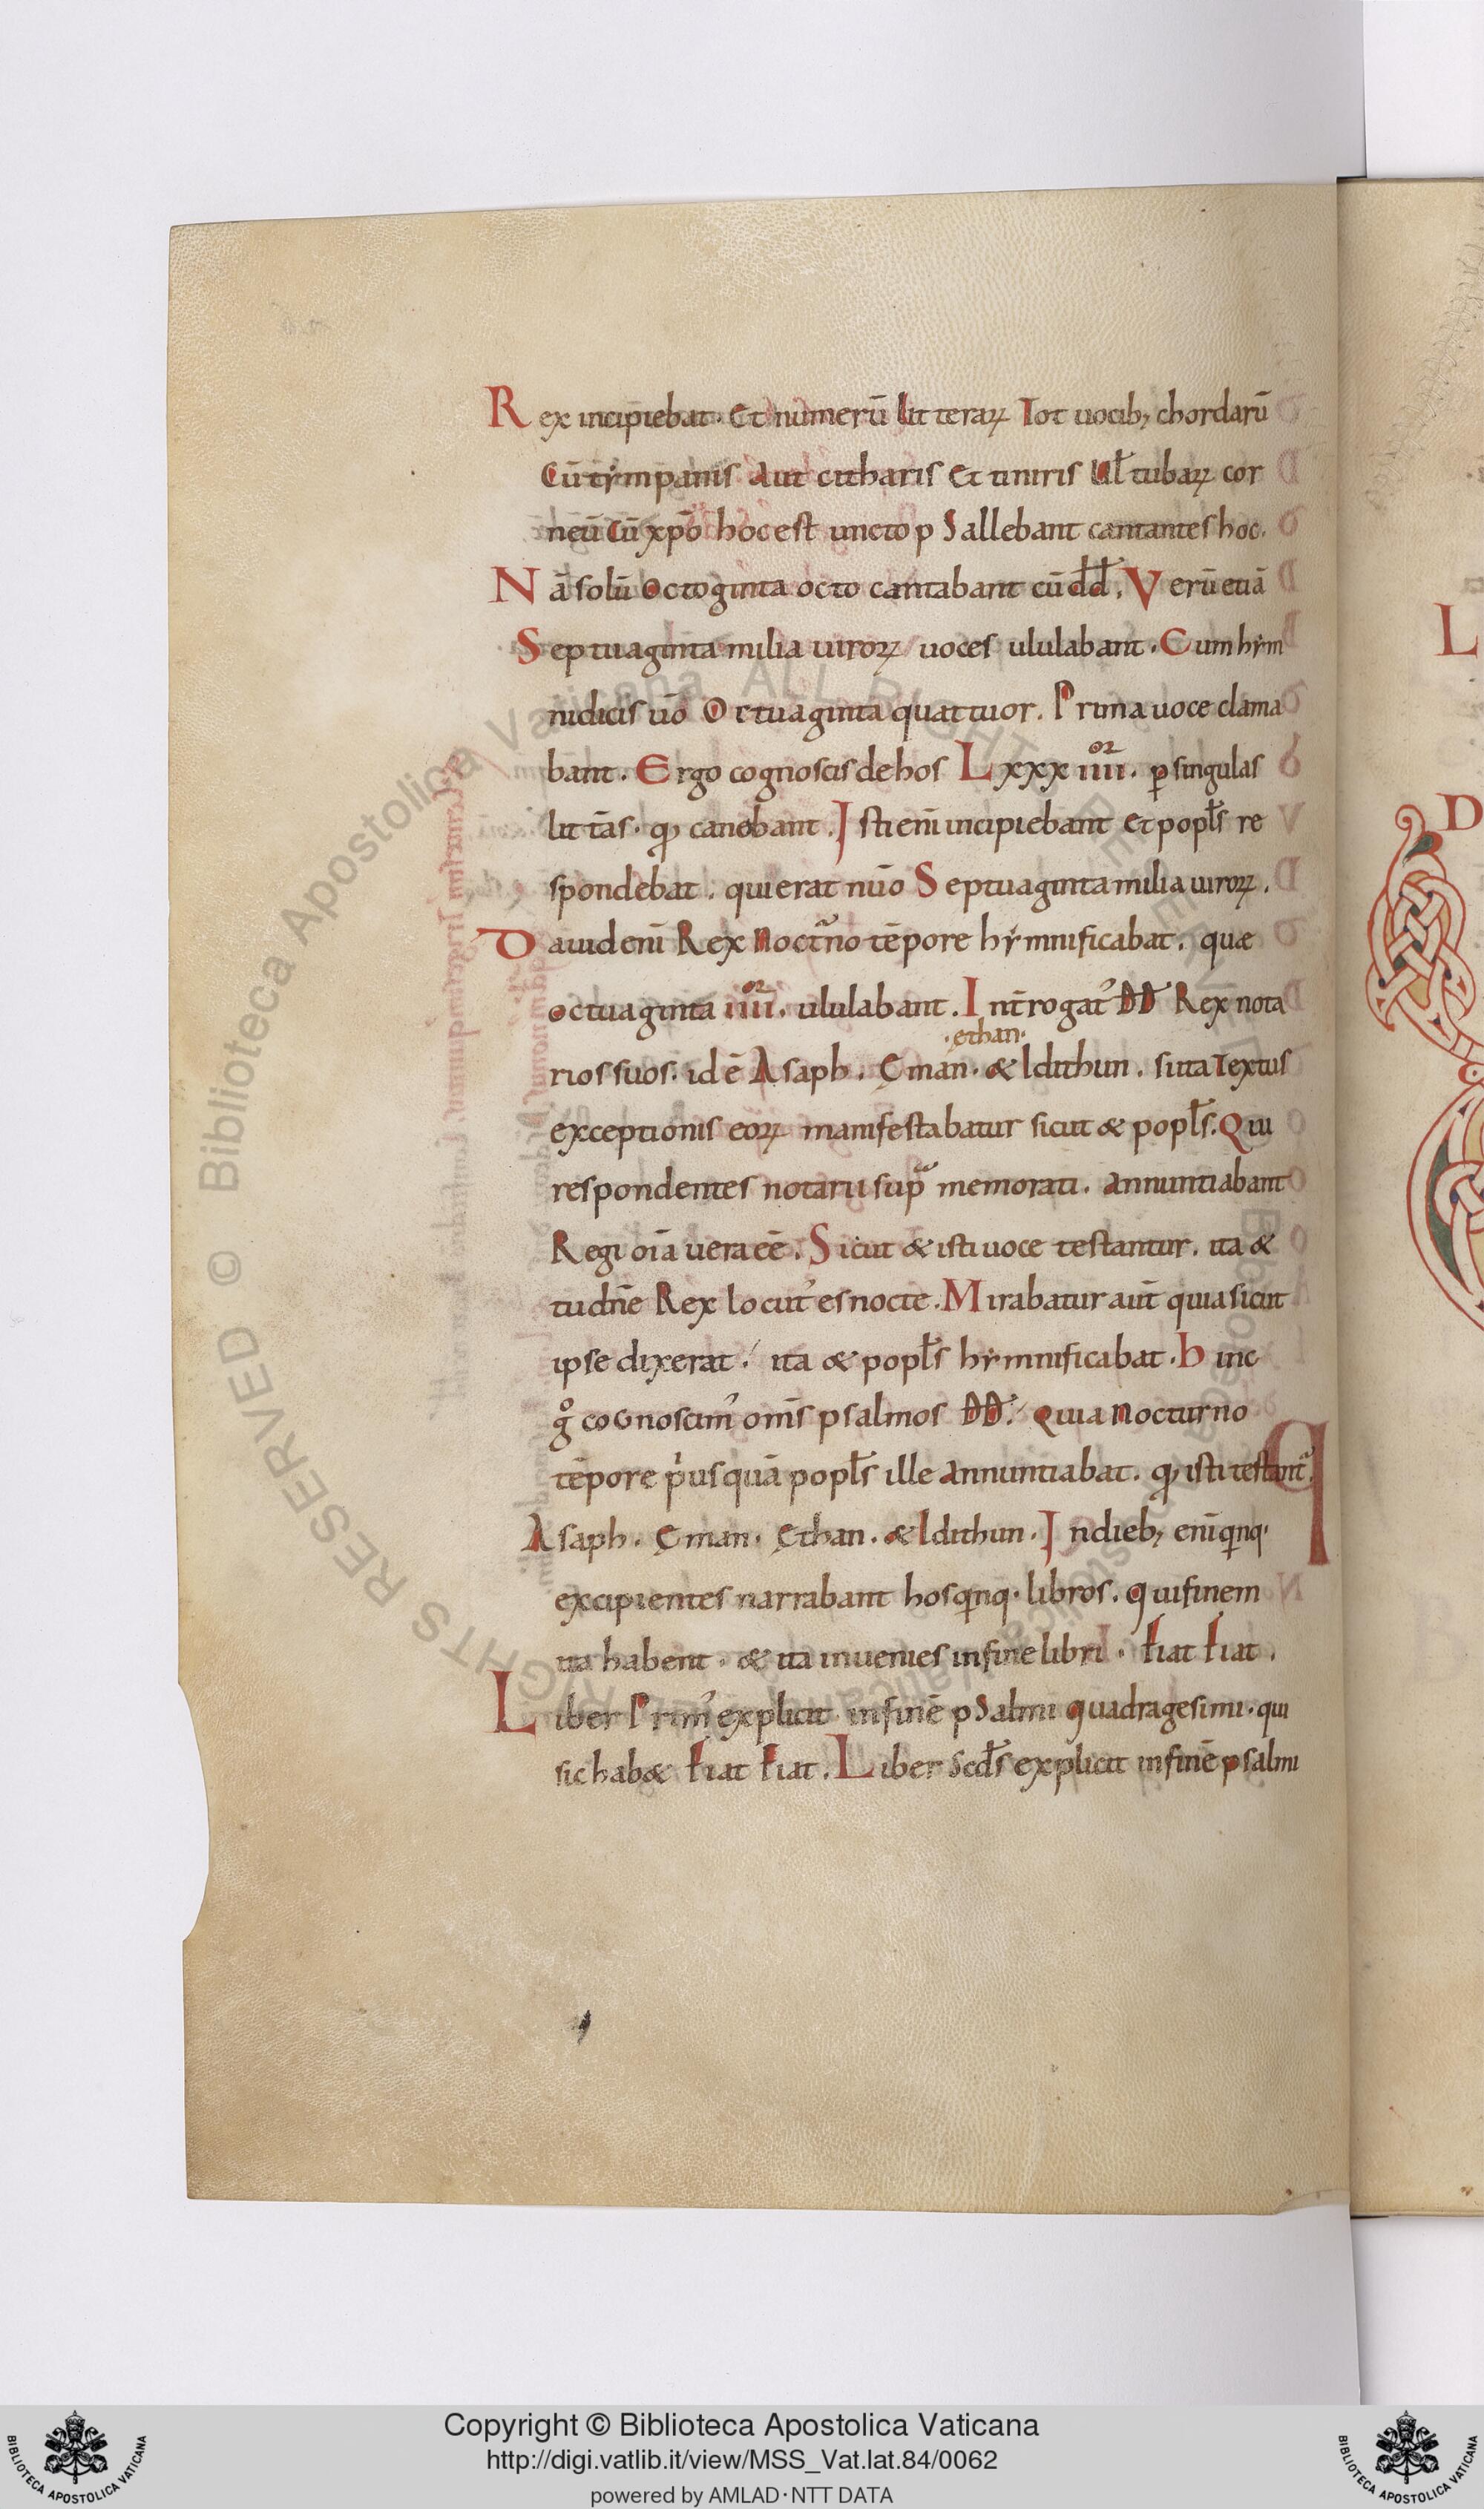 Rex incipiebat. Et numerū litteraꝝ Tot uocib; chordarū
Cū tẏmpanis Aut citharis Et tiniris Ul̄ tubaꝝ cor
neū Cū xp̄o hoc est uncto pSallebant cantantes hoc.
Nā solū Octoginta octo cantabant cū d̄d̄. Verū etiā
Septuaginta milia uiroꝝ uoces ululabant. Cum hẏm
nidicis ūo Octuaginta quattuor. Prima uoce clama
bant. Ergo cognoscis de hos Lxxx iiii. or ꝑ singulas
litt̄as. ꝙ canebant. Isti eni̅ incipiebant Et popl̄s re
spondebat. qui erat nūo Septuaginta milia uiroꝝ.
Dauid eni̅ Rex Noct̄no tēpore hẏmnificabat. quæ
octuaginta iiii. or ululabant. Int̄rogat' DD Rex nota
.ethan.
rios suos. id ē Asaph. Eman. & Idithun. si ita Textus
exceptionis eoꝝ manifestabatur sicut & popl̄s. Qui
respondentes notarii sup̄ memorati. Annuntiabant
Regi oīa uera eē. Sicut & isti uoce testantur. ita &
tu dn̄e Rex locut' es nocte. Mirabatur aut̄ quia sicut
ipse dixerat. ita & popl̄s hẏmnificabat. hinc
gͦ coGnoscim' om̄s psalmos DD. Quia Nocturno
tēpore p'usquā popl̄s ille Annuntiabat. ꝙ isti testant'.
Asaph. Eman. Ethan. & Idithun. In dieb; eni̅ qinq.
excipientes narrabant hos qinq. libros. Qui finem
ita habent. & ita inuenies in fine libri. fiat fiat.
Liber Prim' explicit in finē pSalmi Quadragesimi. qui
sic hab& fiat fiat. Liber Scd̄s explicit in finē psalmi
L
D
Copyright © Biblioteca Apostolica Vaticana
http://digi.vatlib.it/view/MSS_Vat.lat.84/0062
powered by AMLAD·NTT DATA